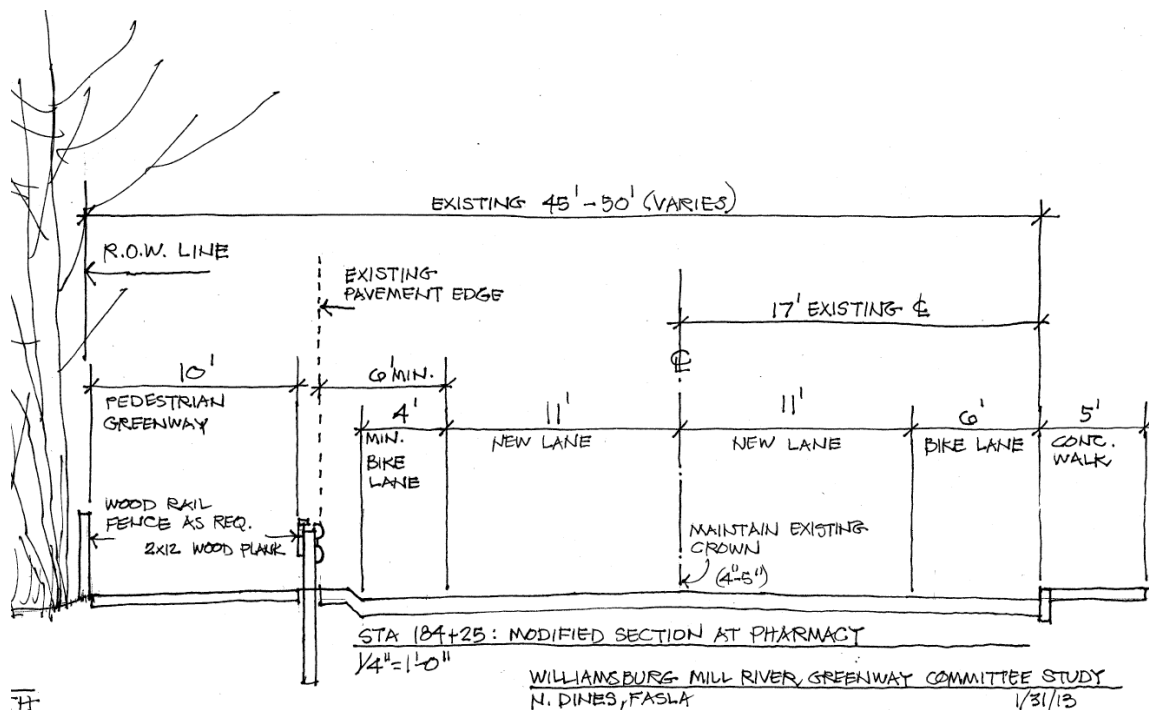 EXISTING 45'-50' (VARIES)
R.O.W. LINE
EXISTING
PAVEMENT EDGE
17' EXISTING ℄
℄
10'
PEDESTRIAN
GREENWAY
6' MIN.
4'
MIN.
BIKE
LANE
11'
NEW LANE
11'
NEW LANE
6'
BIKE LANE
5'
CONC.
WALK
WOOD RAIL
FENCE AS REQ.
2x12 WOOD PLANK
MAINTAIN EXISTING
CROWN
(4"-5")
STA 184+25: MODIFIED SECTION AT PHARMACY
1/4"=1'-0"
WILLIAMSBURG MILL RIVER GREENWAY COMMITTEE STUDY
N. DINES, FASLA 1/31/13